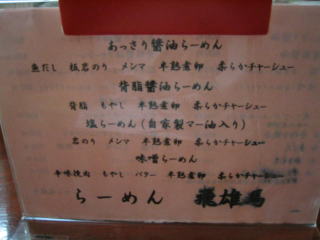 あっさり醤油らーめん
魚だし 板岩のり メンマ 半熟煮卵 柔らかチャーシュー
背脂醤油らーめん
背脂 もやし 半熟煮卵 柔らかチャーシュー
塩らーめん(自家製マー油入り)
岩のり メンマ 半熟煮卵 柔らかチャーシュー
味噌らーめん
辛味挽肉 もやし バター 半熟煮卵 柔らかチャーシュー
らーめん 飛雄馬